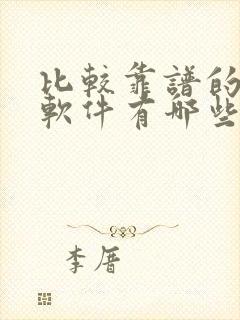 比較靠譜的
軟件有哪些
李厝